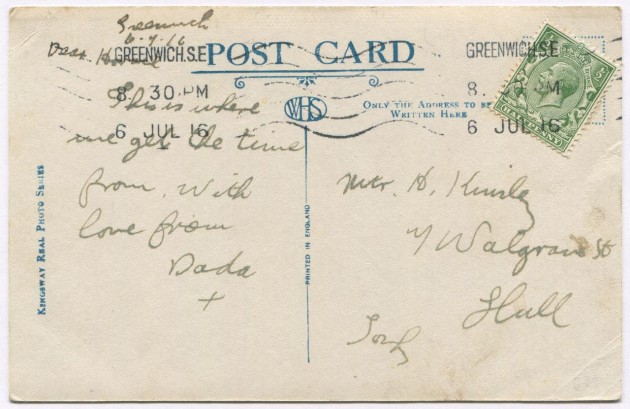 Greenwich
6.7.16
Dear
GREENWICH.S.E
8. 30.PM
6 JUL 16
POST CARD
This is where
we get the time
from. With
love from
Dada
+
WHS
ONLY THE ADDRESS TO BE
WRITTEN HERE
GREENWICH.S.E
8. 30.PM
6 JUL 16
Mtr. H. Kinsley
71 Walgrave St
Hull
KINGSWAY REAL PHOTO SERIES
PRINTED IN ENGLAND